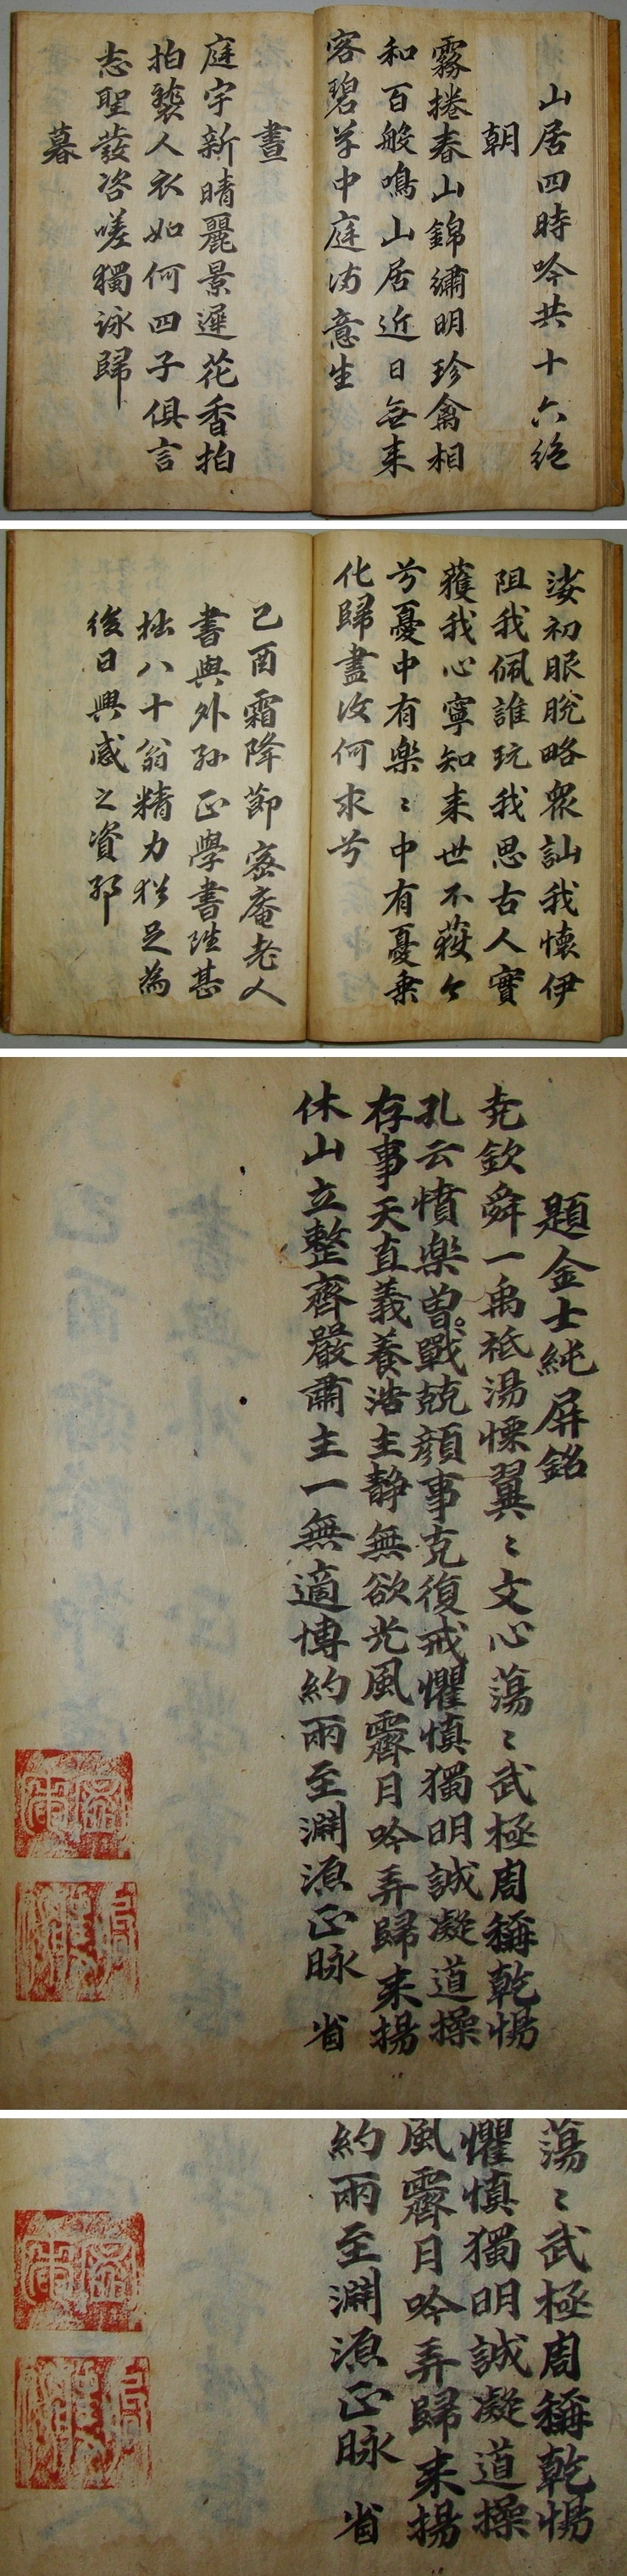 山居四時吟共十六絶
朝
霧捲春山錦繡明珍禽相
和百般鳴山居近日無来
客碧草中庭滿意生
晝
庭宇新晴麗景遲花香拍
拍襲人衣如何四子俱言
志聖發咨嗟獨詠歸
暮
娑初眼脫略衆訕我懷伊
阻我佩誰玩我思古人實
獲我心寧知来世不獲今
兮憂中有楽〻中有憂乗
化歸盡汝何求兮
己酉霜降節密庵老人
書與外孫正學書雖甚
拙八十翁精力猶足為
後日興感之資耶
題金士純屏銘
尭欽舜一禹祗湯慄翼〻文心蕩〻武極周稱乾惕
孔云憤楽曽戰兢顔事克復戒懼慎獨明誠凝道操
存事天直義養浩主静無欲光風霽月吟弄歸来揚
休山立整齊嚴肅主一無適博約兩至淵源正脉 省
蕩〻武極周稱乾惕
懼慎獨明誠凝道操
風霽月吟弄歸来揚
約兩至淵源正脉 省